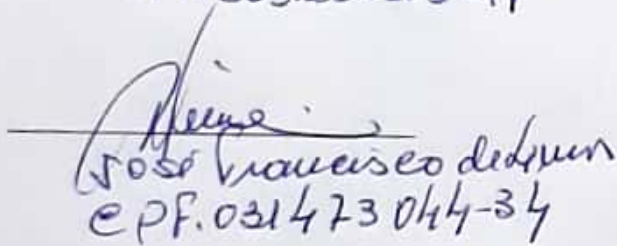 José Francisco de Lima
CPF. 031473044-34